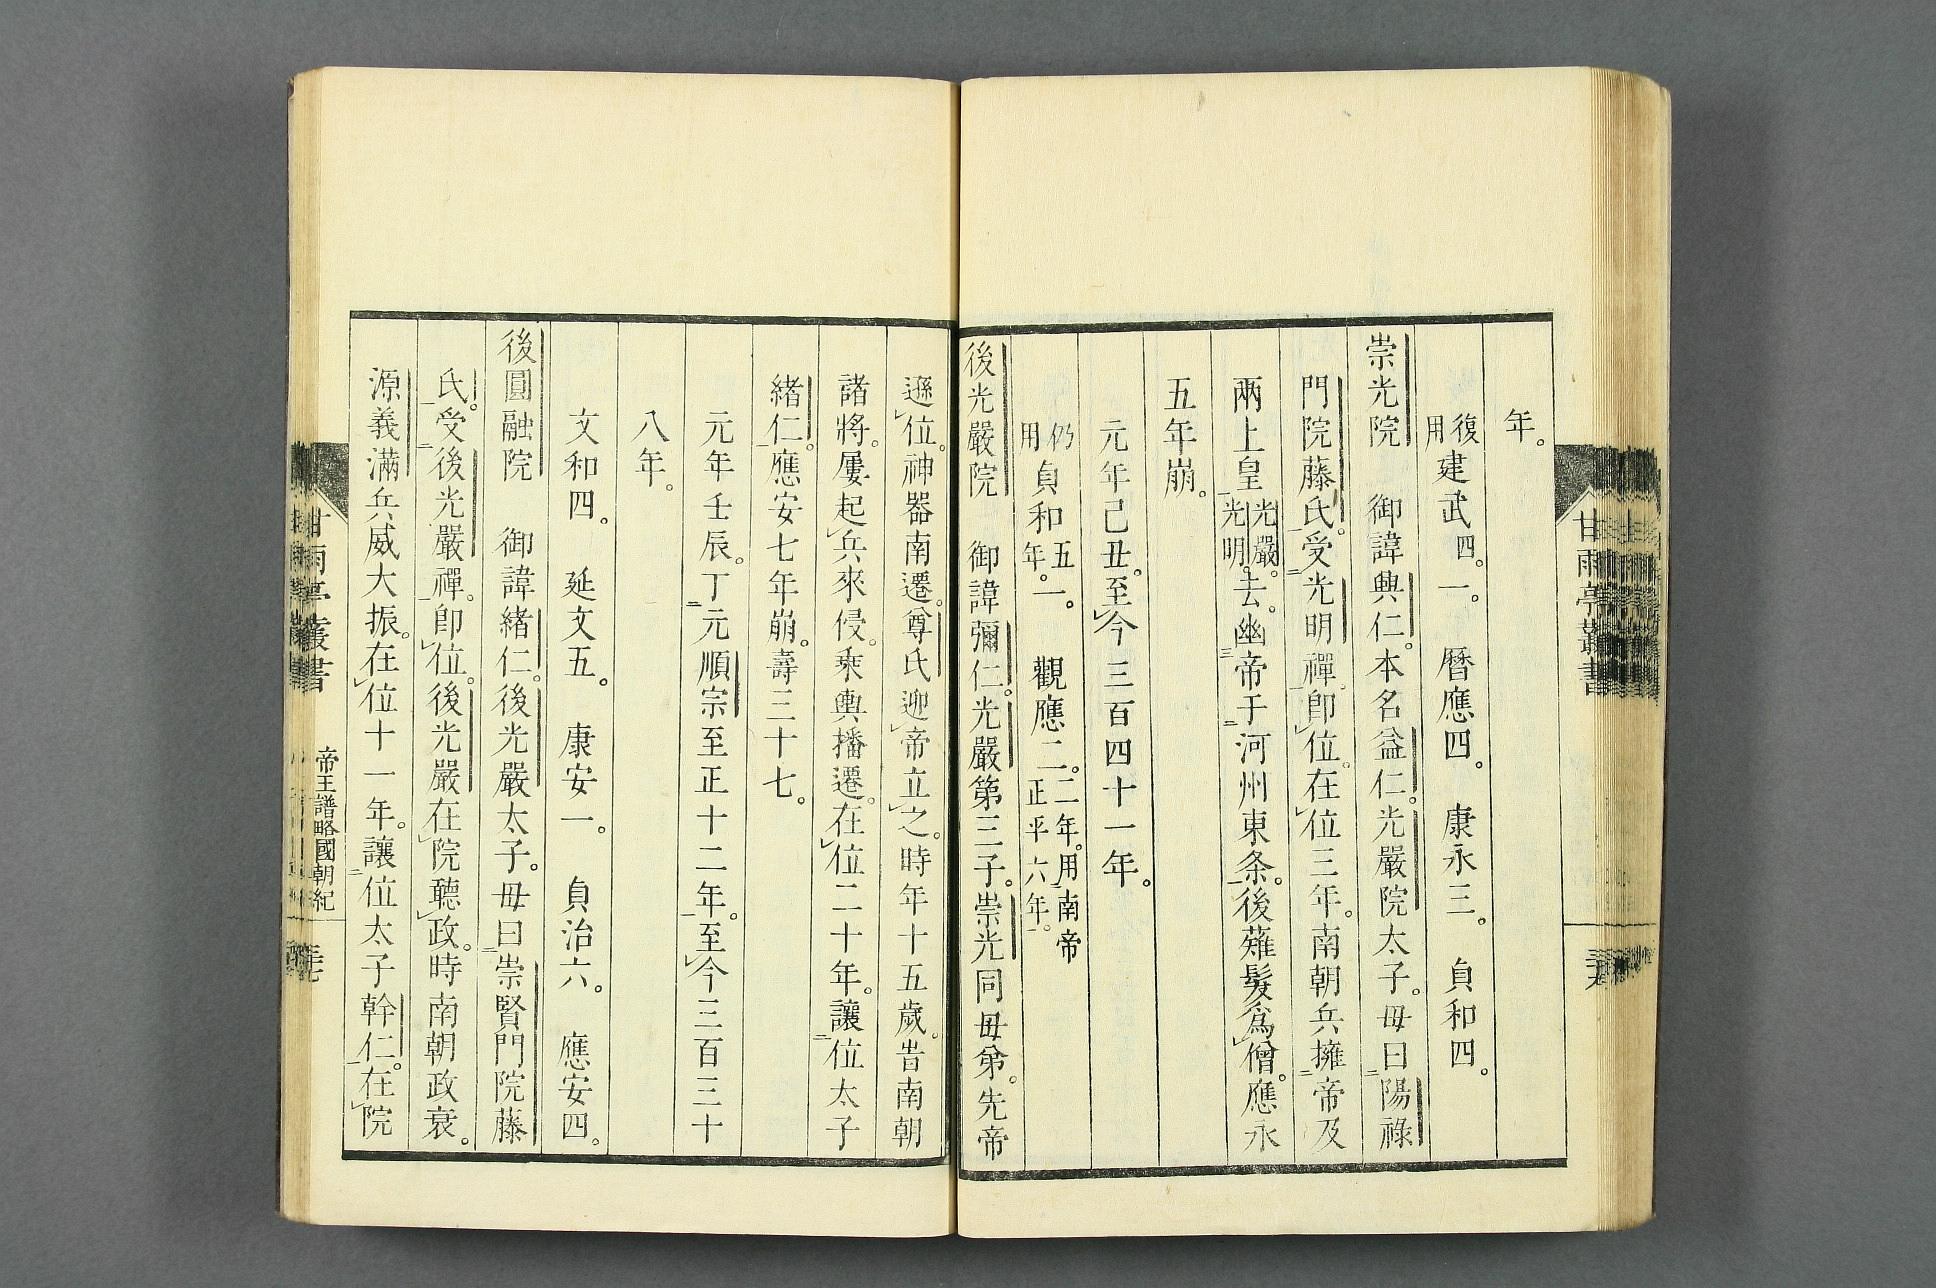 年。
復用建武四。一。　暦應四。　康永三。　貞和四。
崇光院　御諱興仁。本名益仁。光嚴院太子。母曰陽祿
門院藤氏。受光明禪。即位。在位三年。南朝兵擁帝及
兩上皇光嚴。光明。去。幽帝于河州東条。後薙髮爲僧。應永
五年崩。
元年己丑。至今三百四十一年。
仍用貞和五年。一。　觀應二。二年。用南帝正平六年。
後光嚴院　御諱彌仁。光嚴第三子。崇光同母弟。先帝
遜位。神器南遷。尊氏迎帝立之。時年十五歲。昔南朝
諸將。屢起兵來侵。乘輿播遷。在位二十年。讓位太子
緒仁。應安七年崩。壽三十七。
元年壬辰。丁元順宗至正十二年。至今三百三十
八年。
文和四。　延文五。　康安一。　貞治六。　應安四。
後圓融院　御諱緒仁。後光嚴太子。母曰崇賢門院藤
氏。受後光嚴禪。即位。後光嚴在院聽政。時南朝政衰。
源義滿兵威大振。在位十一年。讓位太子幹仁。在院
甘雨亭叢書
甘雨亭叢書
帝王譜略國朝紀